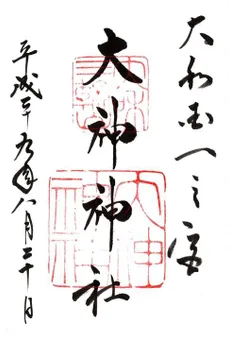 大和国一之宮
大神神社
平成二十九年八月二十日